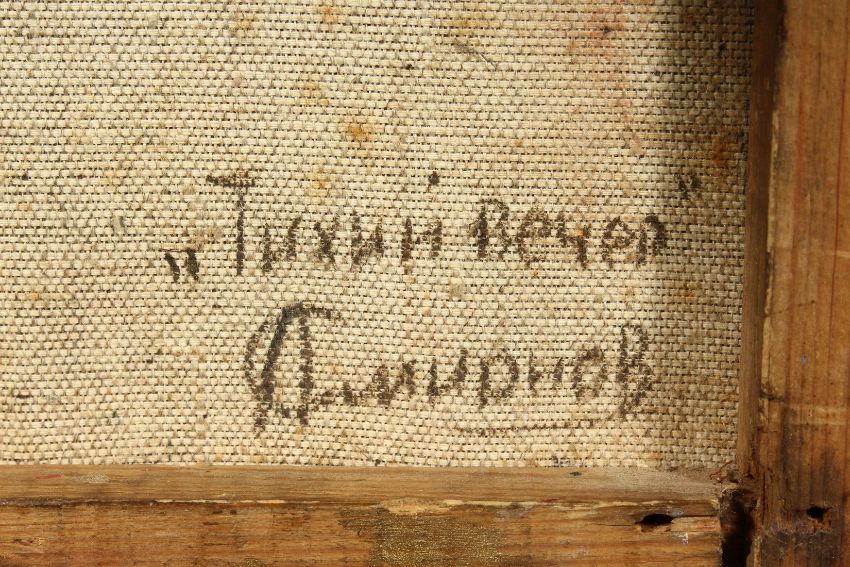 „Тихий вечер"
Смирнов